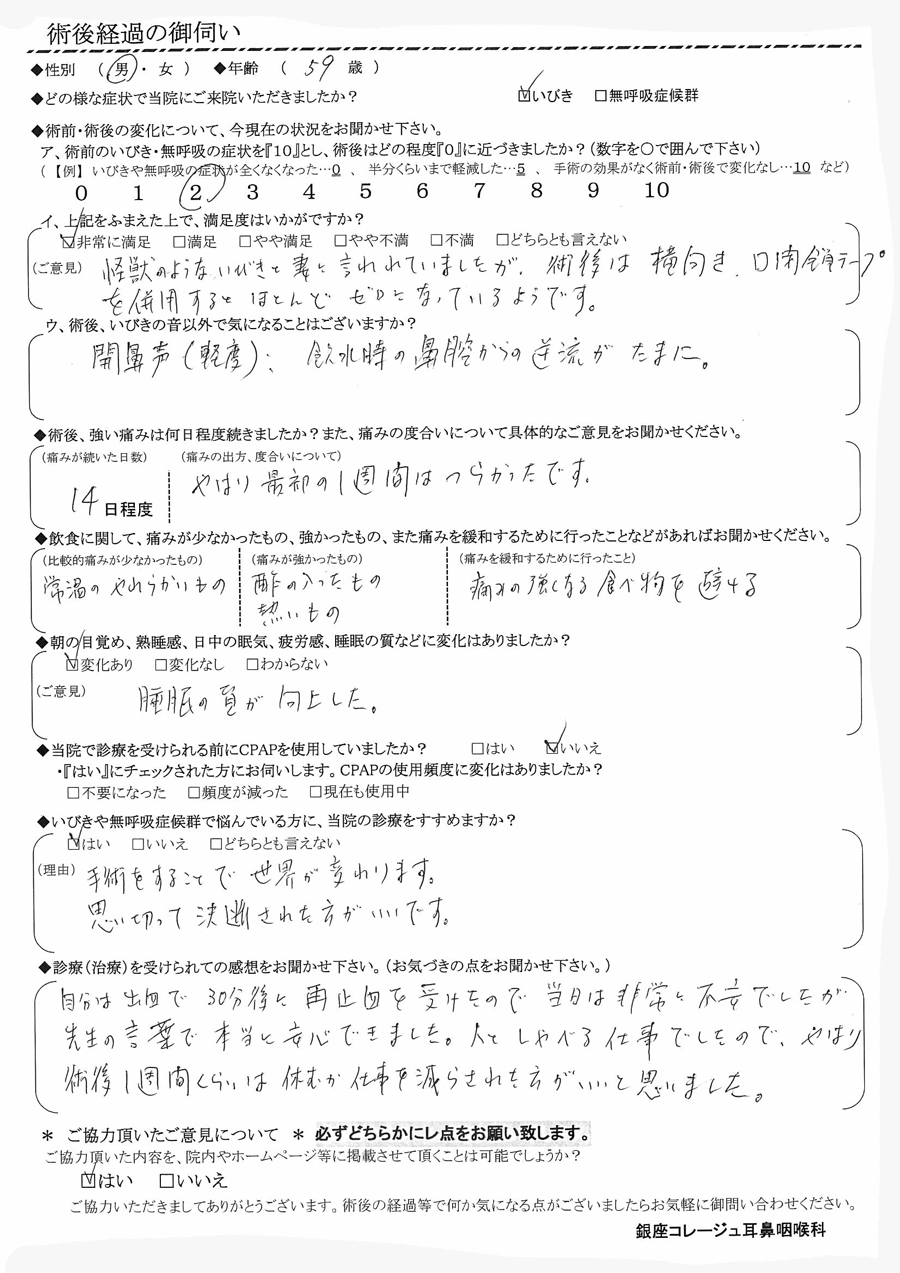 術後経過の御伺い
◆性別 ( 男 ・ 女 ) ◆年齢 ( 59 歳 )
◆どの様な症状で当院にご来院いただきましたか? ☑いびき □無呼吸症候群
◆術前・術後の変化について、今現在の状況をお聞かせ下さい。
ア、術前のいびき・無呼吸の症状を『10』とし、術後はどの程度『0』に近づきましたか?(数字を○で囲んで下さい)
(【例】 いびきや無呼吸の症状が全くなくなった…0 、 半分くらいまで軽減した…5 、 手術の効果がなく術前・術後で変化なし…10 など)
0 1 2 3 4 5 6 7 8 9 10
イ、上記をふまえた上で、満足度はいかがですか?
☑非常に満足 □満足 □やや満足 □やや不満 □不満 □どちらとも言えない
(ご意見) 怪獣のようないびきと妻に言われていましたが、術後は横向き、口閉鎖テープ
を併用するとほとんどゼロになっているようです。
ウ、術後、いびきの音以外で気になることはございますか?
開鼻声(軽度)、飲水時の鼻腔からの逆流がたまに。
◆術後、強い痛みは何日程度続きましたか?また、痛みの度合いについて具体的なご意見をお聞かせください。
(痛みが続いた日数) (痛みの出方、度合いについて)
14日程度 やはり最初の1週間はつらかったです。
◆飲食に関して、痛みが少なかったもの、強かったもの、また痛みを緩和するために行ったことなどがあればお聞かせください。
(比較的痛みが少なかったもの) (痛みが強かったもの) (痛みを緩和するために行ったこと)
常温のやわらかいもの 酢の入ったもの 痛みの強くなる食べ物を避ける
熱いもの
◆朝の目覚め、熟睡感、日中の眠気、疲労感、睡眠の質などに変化はありましたか?
☑変化あり □変化なし □わからない
(ご意見) 睡眠の質が向上した。
◆当院で診療を受けられる前にCPAPを使用していましたか? □はい ☑いいえ
・『はい』にチェックされた方にお伺いします。CPAPの使用頻度に変化はありましたか?
□不要になった □頻度が減った □現在も使用中
◆いびきや無呼吸症候群で悩んでいる方に、当院の診療をすすめますか?
☑はい □いいえ □どちらとも言えない
(理由) 手術をすることで世界が変わります。
思い切って決断された方がいいです。
◆診療(治療)を受けられての感想をお聞かせ下さい。(お気づきの点をお聞かせ下さい。)
自分は出血で30分後に再止血を受けたので当日は非常に不安でしたが
先生の言葉で本当に安心できました。人としゃべる仕事でしたので、やはり
術後1週間くらいは休むか仕事を減らされた方がいいと思いました。
＊ ご協力頂いたご意見について ＊ 必ずどちらかにレ点をお願い致します。
ご協力頂いた内容を、院内やホームページ等に掲載させて頂くことは可能でしょうか?
☑はい □いいえ
ご協力いただきましてありがとうございます。術後の経過等で何か気になる点がございましたらお気軽に御問い合わせください。
銀座コレージュ耳鼻咽喉科